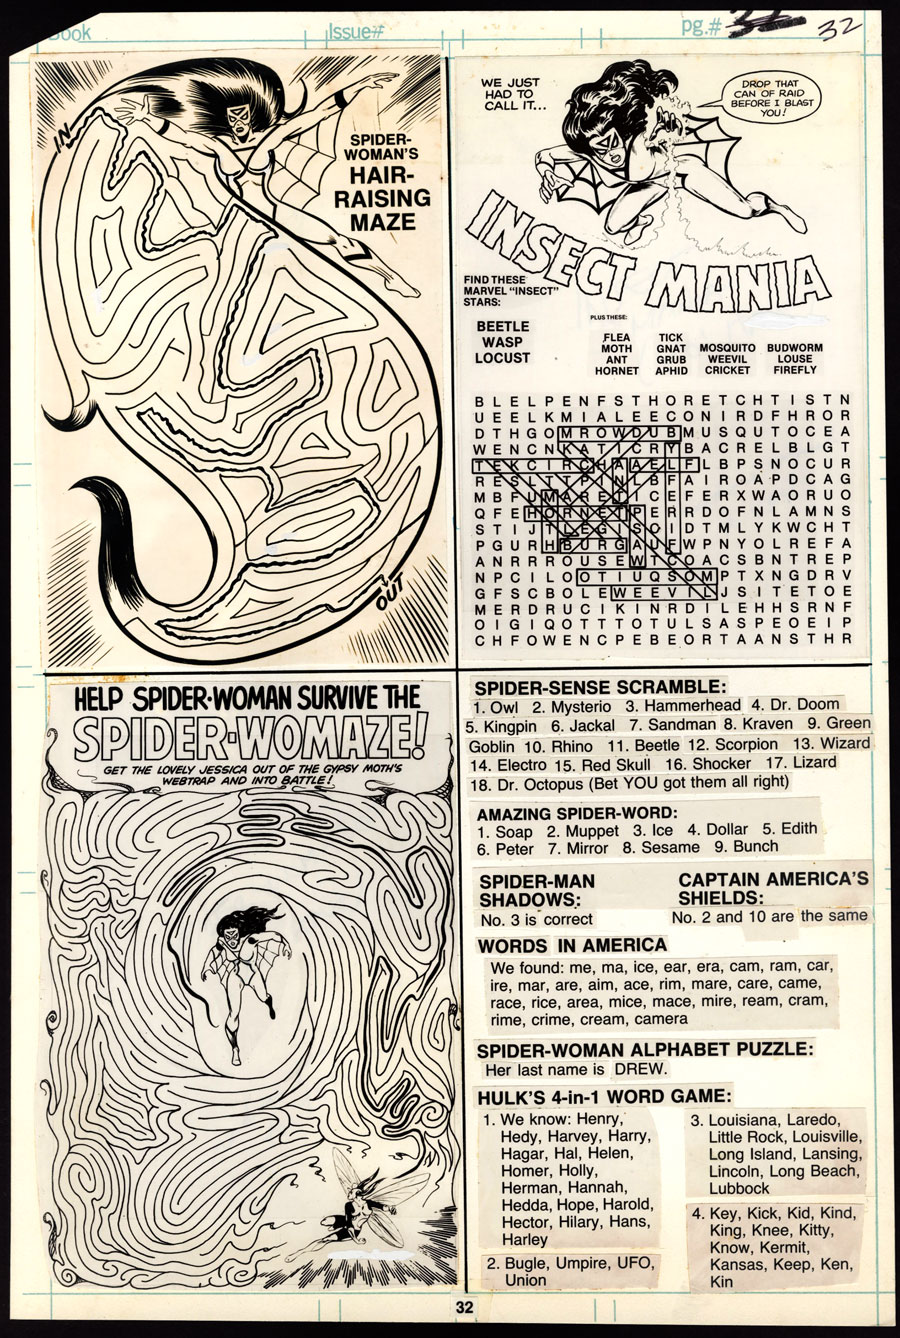 Book
Issue#
pg.#
32
IN
SPIDER-
WOMAN'S
HAIR-
RAISING
MAZE
OUT
WE JUST
HAD TO
CALL IT...
DROP THAT
CAN OF RAID
BEFORE I BLAST
YOU!
INSECT MANIA
FIND THESE
MARVEL "INSECT"
STARS:
BEETLE
WASP
LOCUST
PLUS THESE:
FLEA
MOTH
ANT
HORNET
TICK
GNAT
GRUB
APHID
MOSQUITO
WEEVIL
CRICKET
BUDWORM
LOUSE
FIREFLY
B L E L P E N F S T H O R E T C H T I S T N
U E E L K M I A L E E C O N I R D F H R O R
D T H G O M R O W D U B M U S Q U T O C E A
W E N C N K A T I C R Y B A C R E L B L G T
T E K C I R C H A A E L F L B P S N O C U R
A N R R R O U S E W T C O A C S B N T R E P
N P C I L O O T I U Q S O M P T X N G D R V
G F S C B O L E W E E V I L J S I T E T O E
M E R D R U C I K I N R D I L E H H S R N F
O I G I Q O T T O T U L S A S P E O E I P
C H F O W E N C P E B E O R T A A N S T H R
HELP SPIDER-WOMAN SURVIVE THE
SPIDER-WOMAZE!
GET THE LOVELY JESSICA OUT OF THE GYPSY MOTH'S
WEBTRAP AND INTO BATTLE!
SPIDER-SENSE SCRAMBLE:
1. Owl 2. Mysterio 3. Hammerhead 4. Dr. Doom
5. Kingpin 6. Jackal 7. Sandman 8. Kraven 9. Green
Goblin 10. Rhino 11. Beetle 12. Scorpion 13. Wizard
14. Electro 15. Red Skull 16. Shocker 17. Lizard
18. Dr. Octopus (Bet YOU got them all right)
AMAZING SPIDER-WORD:
1. Soap 2. Muppet 3. Ice 4. Dollar 5. Edith
6. Peter 7. Mirror 8. Sesame 9. Bunch
SPIDER-MAN
SHADOWS:
No. 3 is correct
CAPTAIN AMERICA'S
SHIELDS:
No. 2 and 10 are the same
WORDS IN AMERICA
We found: me, ma, ice, ear, era, cam, ram, car,
ire, mar, are, aim, ace, rim, mare, care, came,
race, rice, area, mice, mace, mire, ream, cram,
rime, crime, cream, camera
SPIDER-WOMAN ALPHABET PUZZLE:
Her last name is DREW.
HULK'S 4-in-1 WORD GAME:
1. We know: Henry,
Hedy, Harvey, Harry,
Hagar, Hal, Helen,
Homer, Holly,
Herman, Hannah,
Hedda, Hope, Harold,
Hector, Hilary, Hans,
Harley
2. Bugle, Umpire, UFO,
Union
3. Louisiana, Laredo,
Little Rock, Louisville,
Long Island, Lansing,
Lincoln, Long Beach,
Lubbock
4. Key, Kick, Kid, Kind,
King, Knee, Kitty,
Know, Kermit,
Kansas, Keep, Ken,
Kin
32